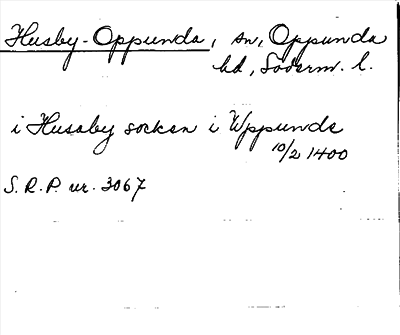 Husby-Oppunda, sn, Oppunda
hd, Söderm. l.
i Husaby socken i Wppunde
10/2 1400
S.R.P. nr. 3067